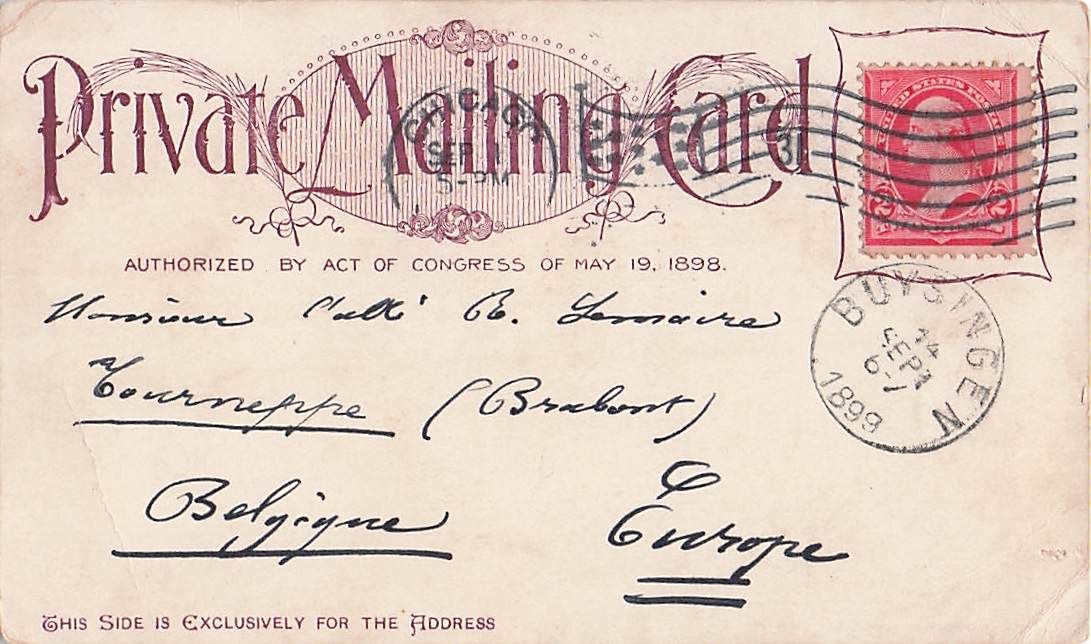 Private Mailing Card
CHICAGO
SEP 1
5-PM
3
UNITED STATES POSTAGE
2 2
AUTHORIZED BY ACT OF CONGRESS OF MAY 19, 1898.
Monsieur l'abbé B. Lemaire
Tourneppe (Brabant)
Belgique Europe
BUYSINGEN
14
SEPT
6-7
1899
THIS SIDE IS EXCLUSIVELY FOR THE ADDRESS